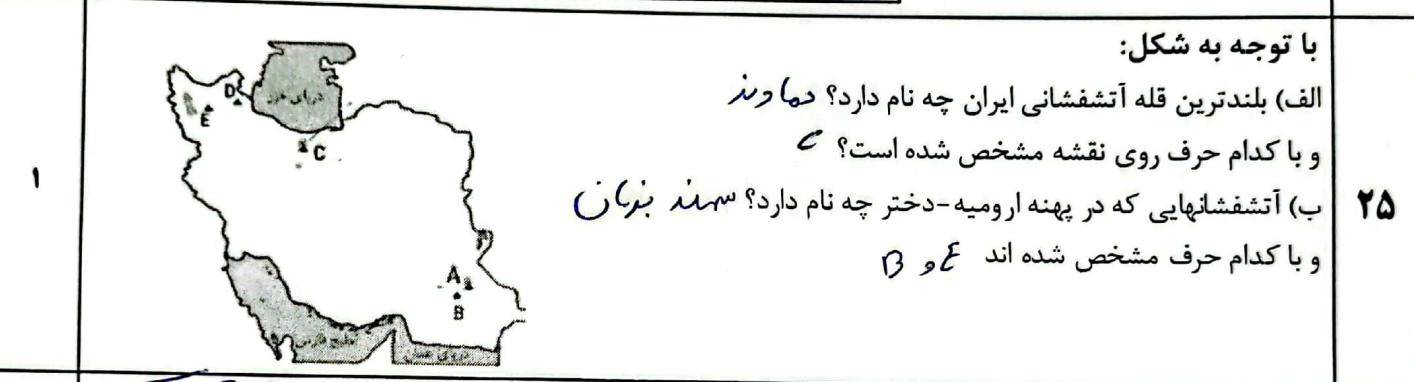 با توجه به شکل:
الف) بلندترین قله آتشفشانی ایران چه نام دارد؟ دماوند
و با کدام حرف روی نقشه مشخص شده است؟ C
ب) آتشفشانهایی که در پهنه ارومیه-دختر چه نام دارد؟ سهند بزمان
و با کدام حرف مشخص شده اند E و B
۲۵
۱
دریای خزر
D
E
C
A
B
خلیج فارس
دریای عمان